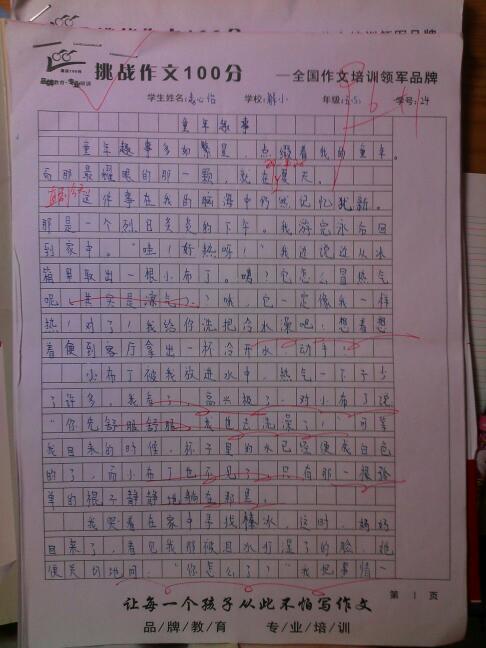 挑战作文100分
—全国作文培训领军品牌
学生姓名: 学校: 年级: 学号:24
童年趣事
童年趣事多如繁星,点缀着我的童年。
而那最耀眼的那一颗,就在夏天。
这件事在我的脑海中仍然记忆犹新。
那是一个烈日炎炎的下午。我游完泳后回
到家中。“哇!好热呀!”我边说边从冰
箱里取出一根小布丁。咦?它怎么冒热气
呢(其实是凉气)?哦,它一定像我一样
热!对了!我给你洗把冷水澡吧!想着想
着便到客厅拿出一杯冷开水,动手!
小布丁被我放进水中,热气一下子少
了许多,我高兴极了,对小布丁说
“你先舒服舒服,我也去洗澡了!”可等
我回来的时候,杯子里的水已经便成白色
的了,而小布丁也不见了,只有那一根孤
单的棍子静静地躺在那里。
我哭着在家中寻找棒冰,这时,妈妈
回来了,看见我那被泪水打湿了的脸,她
便关切地问:“你怎么了?”我把事情一
第 1 页
让每一个孩子从此不怕写作文
品/牌/教/育 专/业/培/训